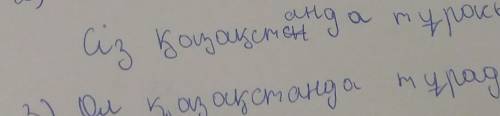 Сіз Қазақстанда тұрасы
3) Ол Қазақстанда тұрад